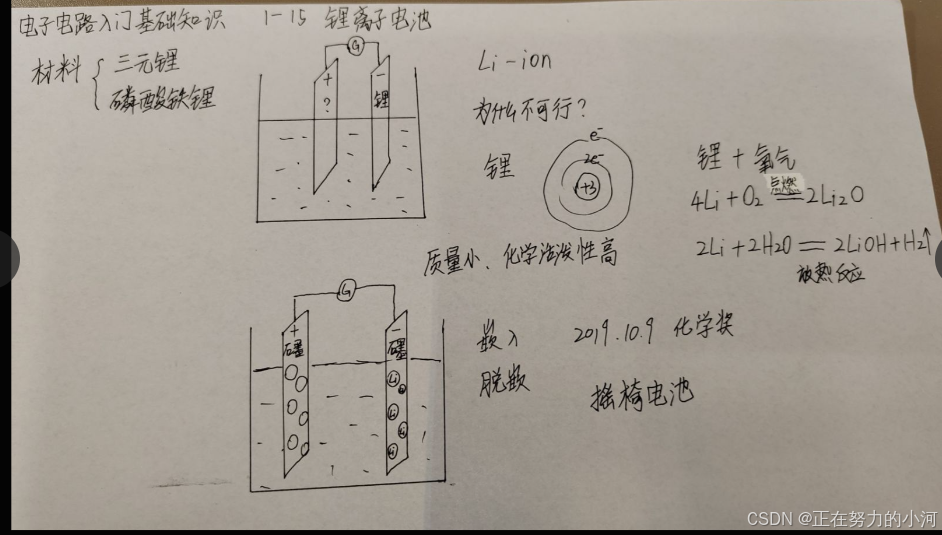 电子电路入门基础知识 1-15 锂离子电池
材料 { 三元锂
磷酸铁锂
G
+ ?
- 锂
Li-ion
为什么不可行?
锂
e⁻
2e⁻
+3
锂 + 氧气
4Li + O₂ 点燃 == 2Li₂O
2Li + 2H₂O == 2LiOH + H₂↑
放热反应
质量小、化学活泼性高
G
+ 石墨
- 石墨
Li
Li
Li
嵌入 2019.10.9 化学奖
脱嵌
摇椅电池
CSDN @正在努力的小河